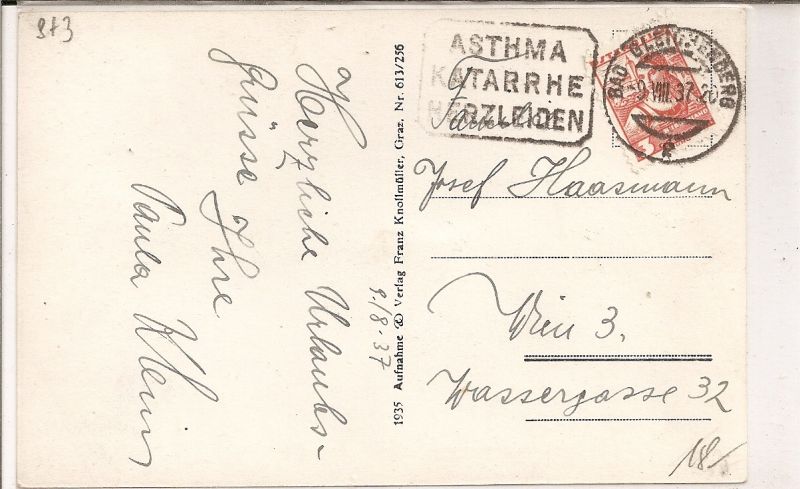 873
Herzliche Urlaubs-
grüsse Ihre
Paula Klein
1935 Aufnahme & Verlag Franz Knollmüller, Graz, Nr. 613/256
9./8.37
ASTHMA
KATARRHE
HERZLEIDEN
BAD GLEICHENBERG
-9.VIII.37.20
2
3
Familie
Josef Haasmann
Wien 3.
Wassergasse 32
18/-